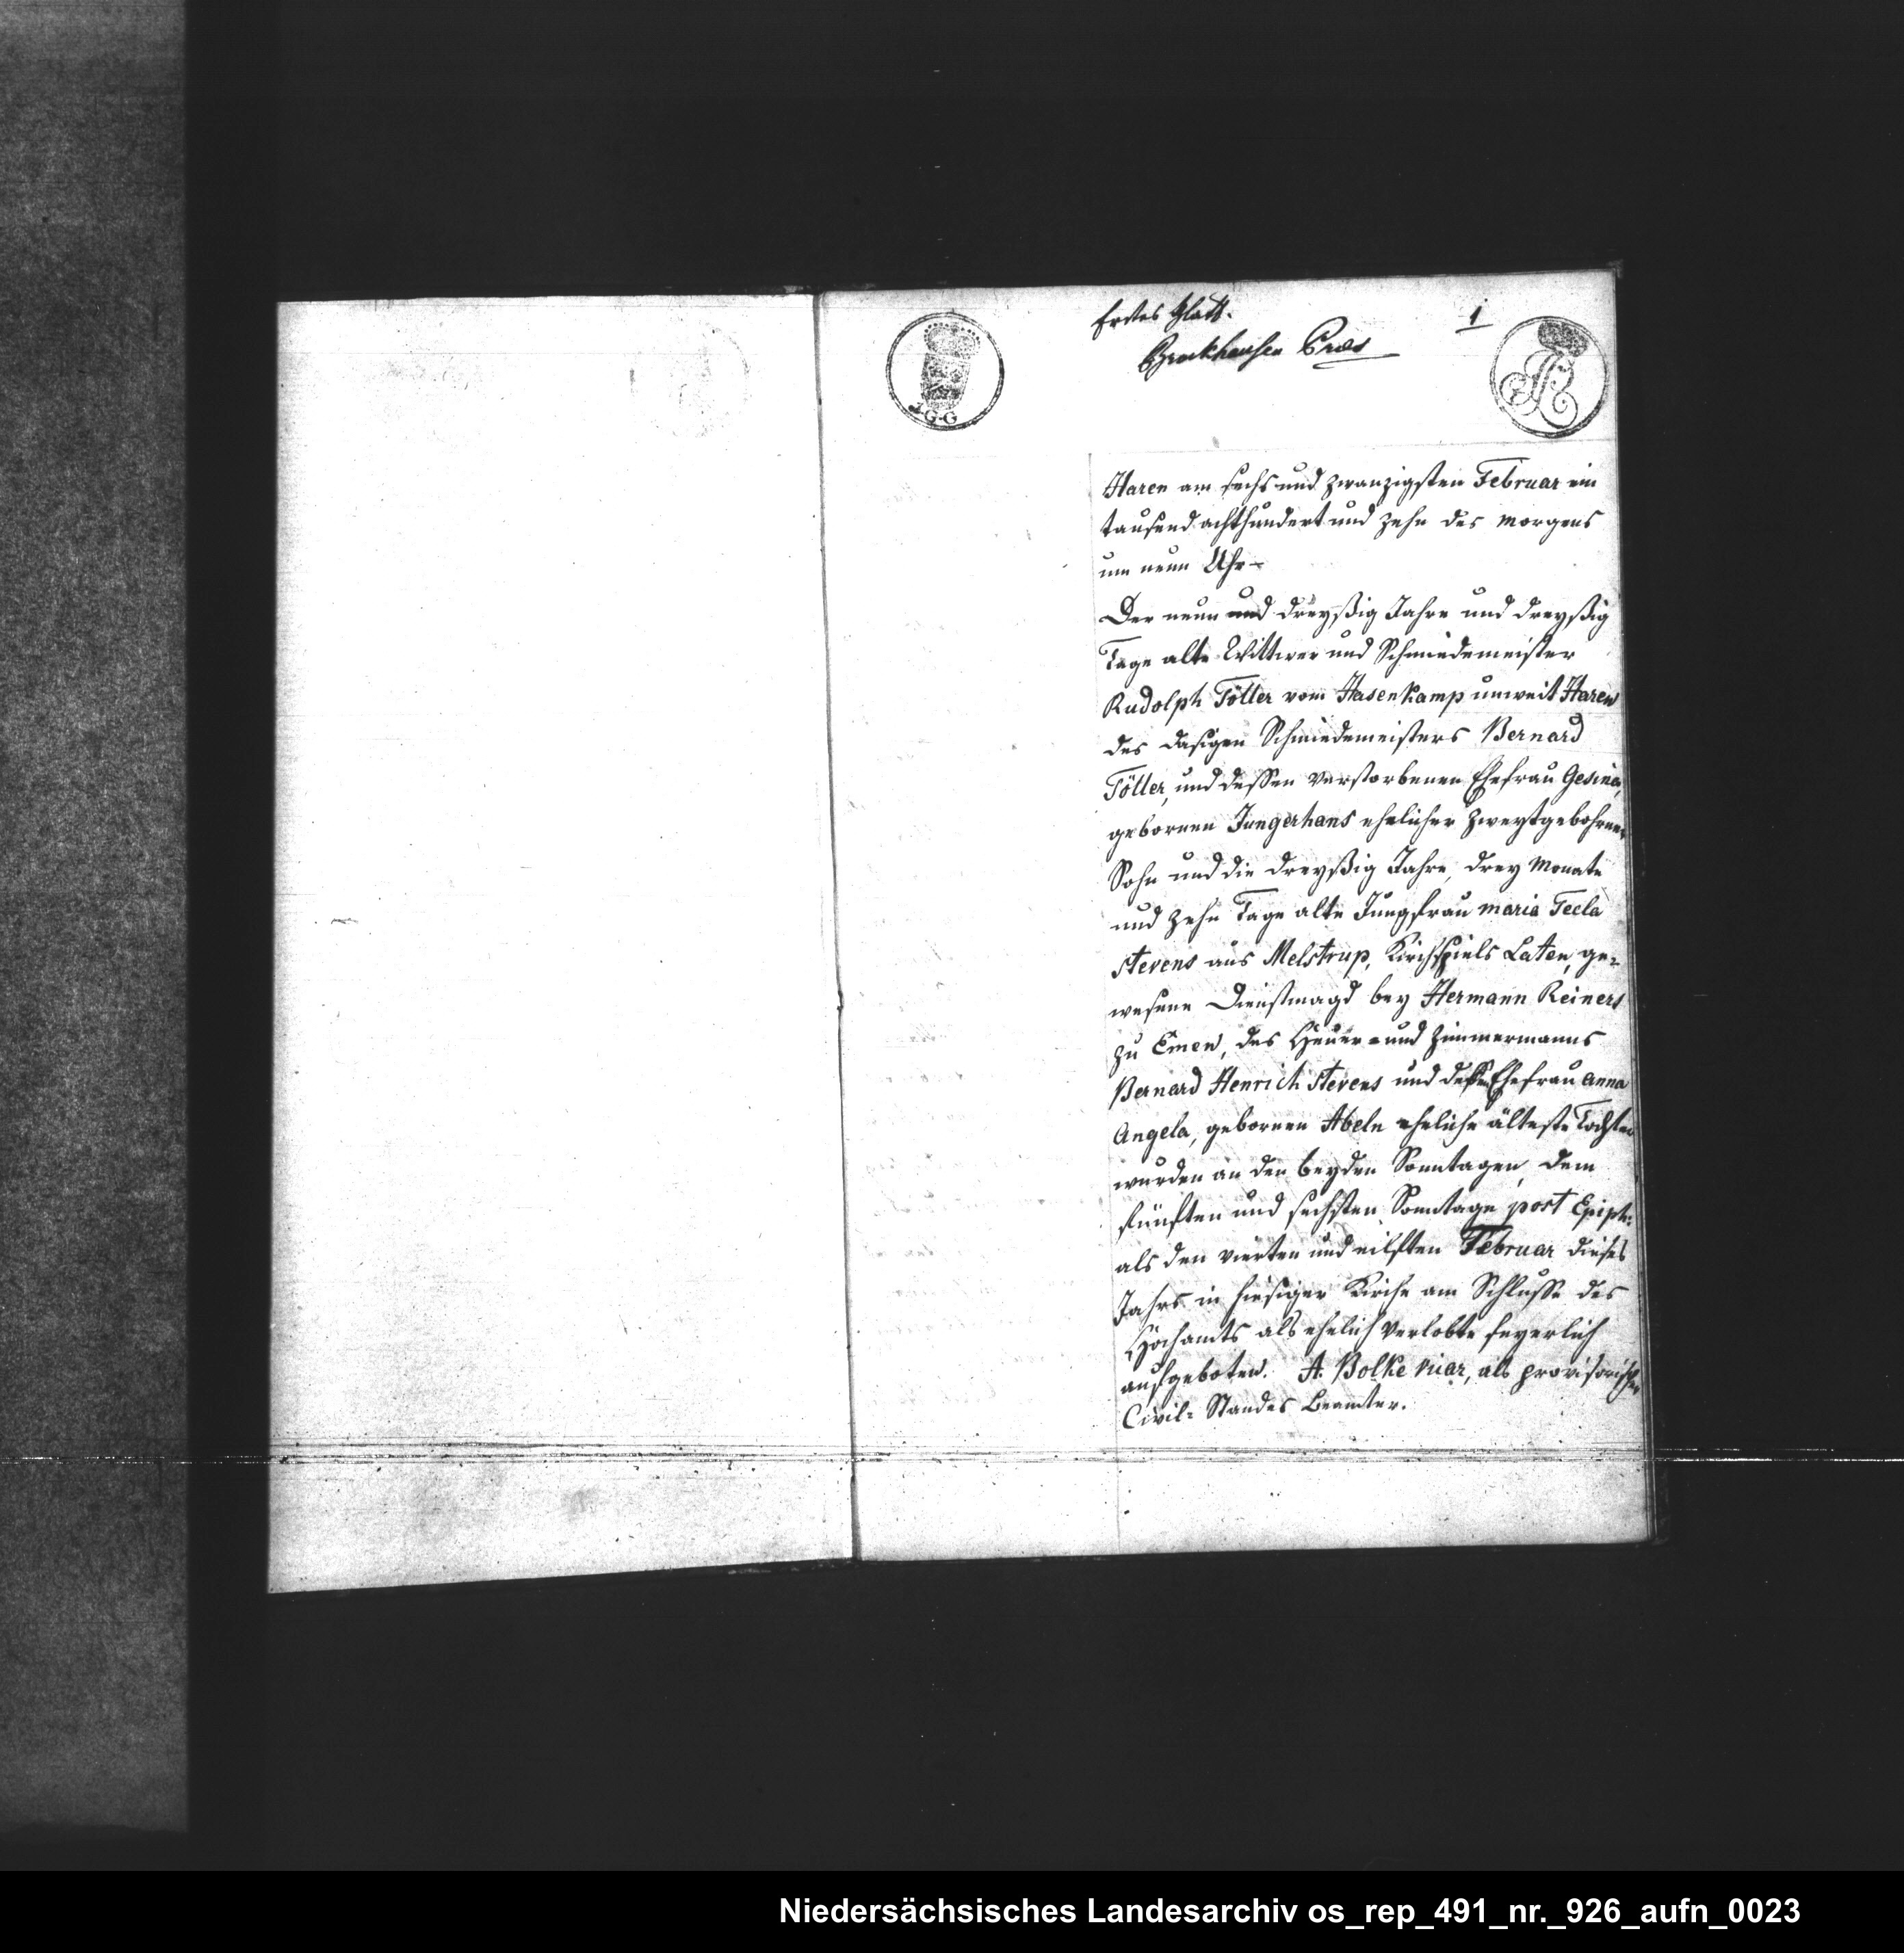 Erstes Blatt.
1
Brockhausen Præs
1 G G
Haren am sechs und zwanzigsten Februar ein
tausend achthundert und zehn des Morgens
um neun Uhr
Der neun und dreyßig Jahre und dreyßig
Tage alte Wittwer und Schmiedemeister
Rudolph Töller vom Hasenkamp unweit Haren
des dasigen Schmiedemeisters Bernard
Töller, und dessen verstorbenen Ehefrau Gesina,
gebornen Jungerhans ehelicher zweytgebohrner
Sohn und die dreyßig Jahre, drey Monate
und zehn Tage alte Jungfrau Maria Tecla
Stevens aus Melstrup, Kirchspiels Laten, ge-
wesene Dienstmagd bey Hermann Reiners
zu Emen, des Heuer- und Zimmermanns
Bernard Henrich Stevens und dessen Ehefrau Anna
Angela, gebornen Abeln eheliche älteste Tochter
wurden an den beyden Sonntagen, dem
fünften und sechsten Sonntage post Epiph:
als den vierten und eilften Februar dieses
Jahrs in hiesiger Kirche am Schlusse des
Hochamts als ehelich Verlobte feyerlich
aufgeboten. A. Bolke, als provisorischer
Civil-Standes Beamter.
Niedersächsisches Landesarchiv os_rep_491_nr._926_aufn_0023